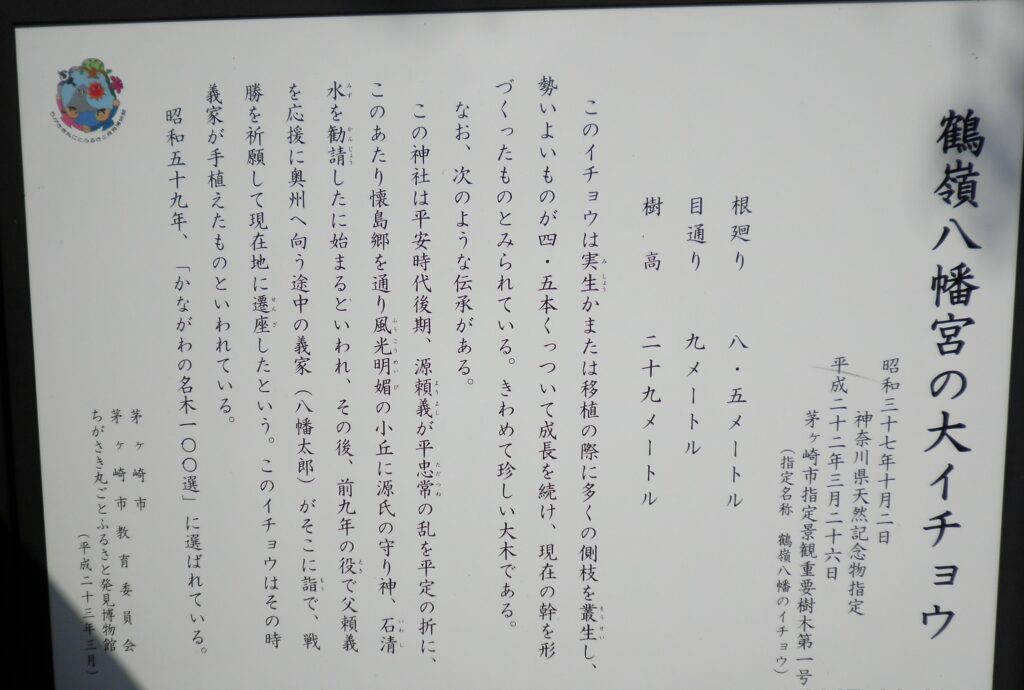 鶴嶺八幡宮の大イチョウ
昭和三十七年十月二日
神奈川県天然記念物指定
平成二十二年三月二十六日
茅ヶ崎市指定景観重要樹木第一号
（指定名称　鶴嶺八幡のイチョウ）
根廻り　八・五メートル
目通り　九メートル
樹　高　二十九メートル
このイチョウは実生かまたは移植の際に多くの側枝を叢生し、
勢いよいものが四・五本くっついて成長を続け、現在の幹を形
づくったものとみられている。きわめて珍しい大木である。
なお、次のような伝承がある。
この神社は平安時代後期、源頼義が平忠常の乱を平定の折に、
このあたり懐島郷を通り風光明媚の小丘に源氏の守り神、石清
水を勧請したに始まるといわれ、その後、前九年の役で父頼義
を応援に奥州へ向う途中の義家（八幡太郎）がそこに詣で、戦
勝を祈願して現在地に遷座したという。このイチョウはその時
義家が手植えたものといわれている。
昭和五十九年、「かながわの名木一〇〇選」に選ばれている。
茅ヶ崎市
茅ヶ崎市教育委員会
ちがさき丸ごとふるさと発見博物館
（平成二十三年三月）